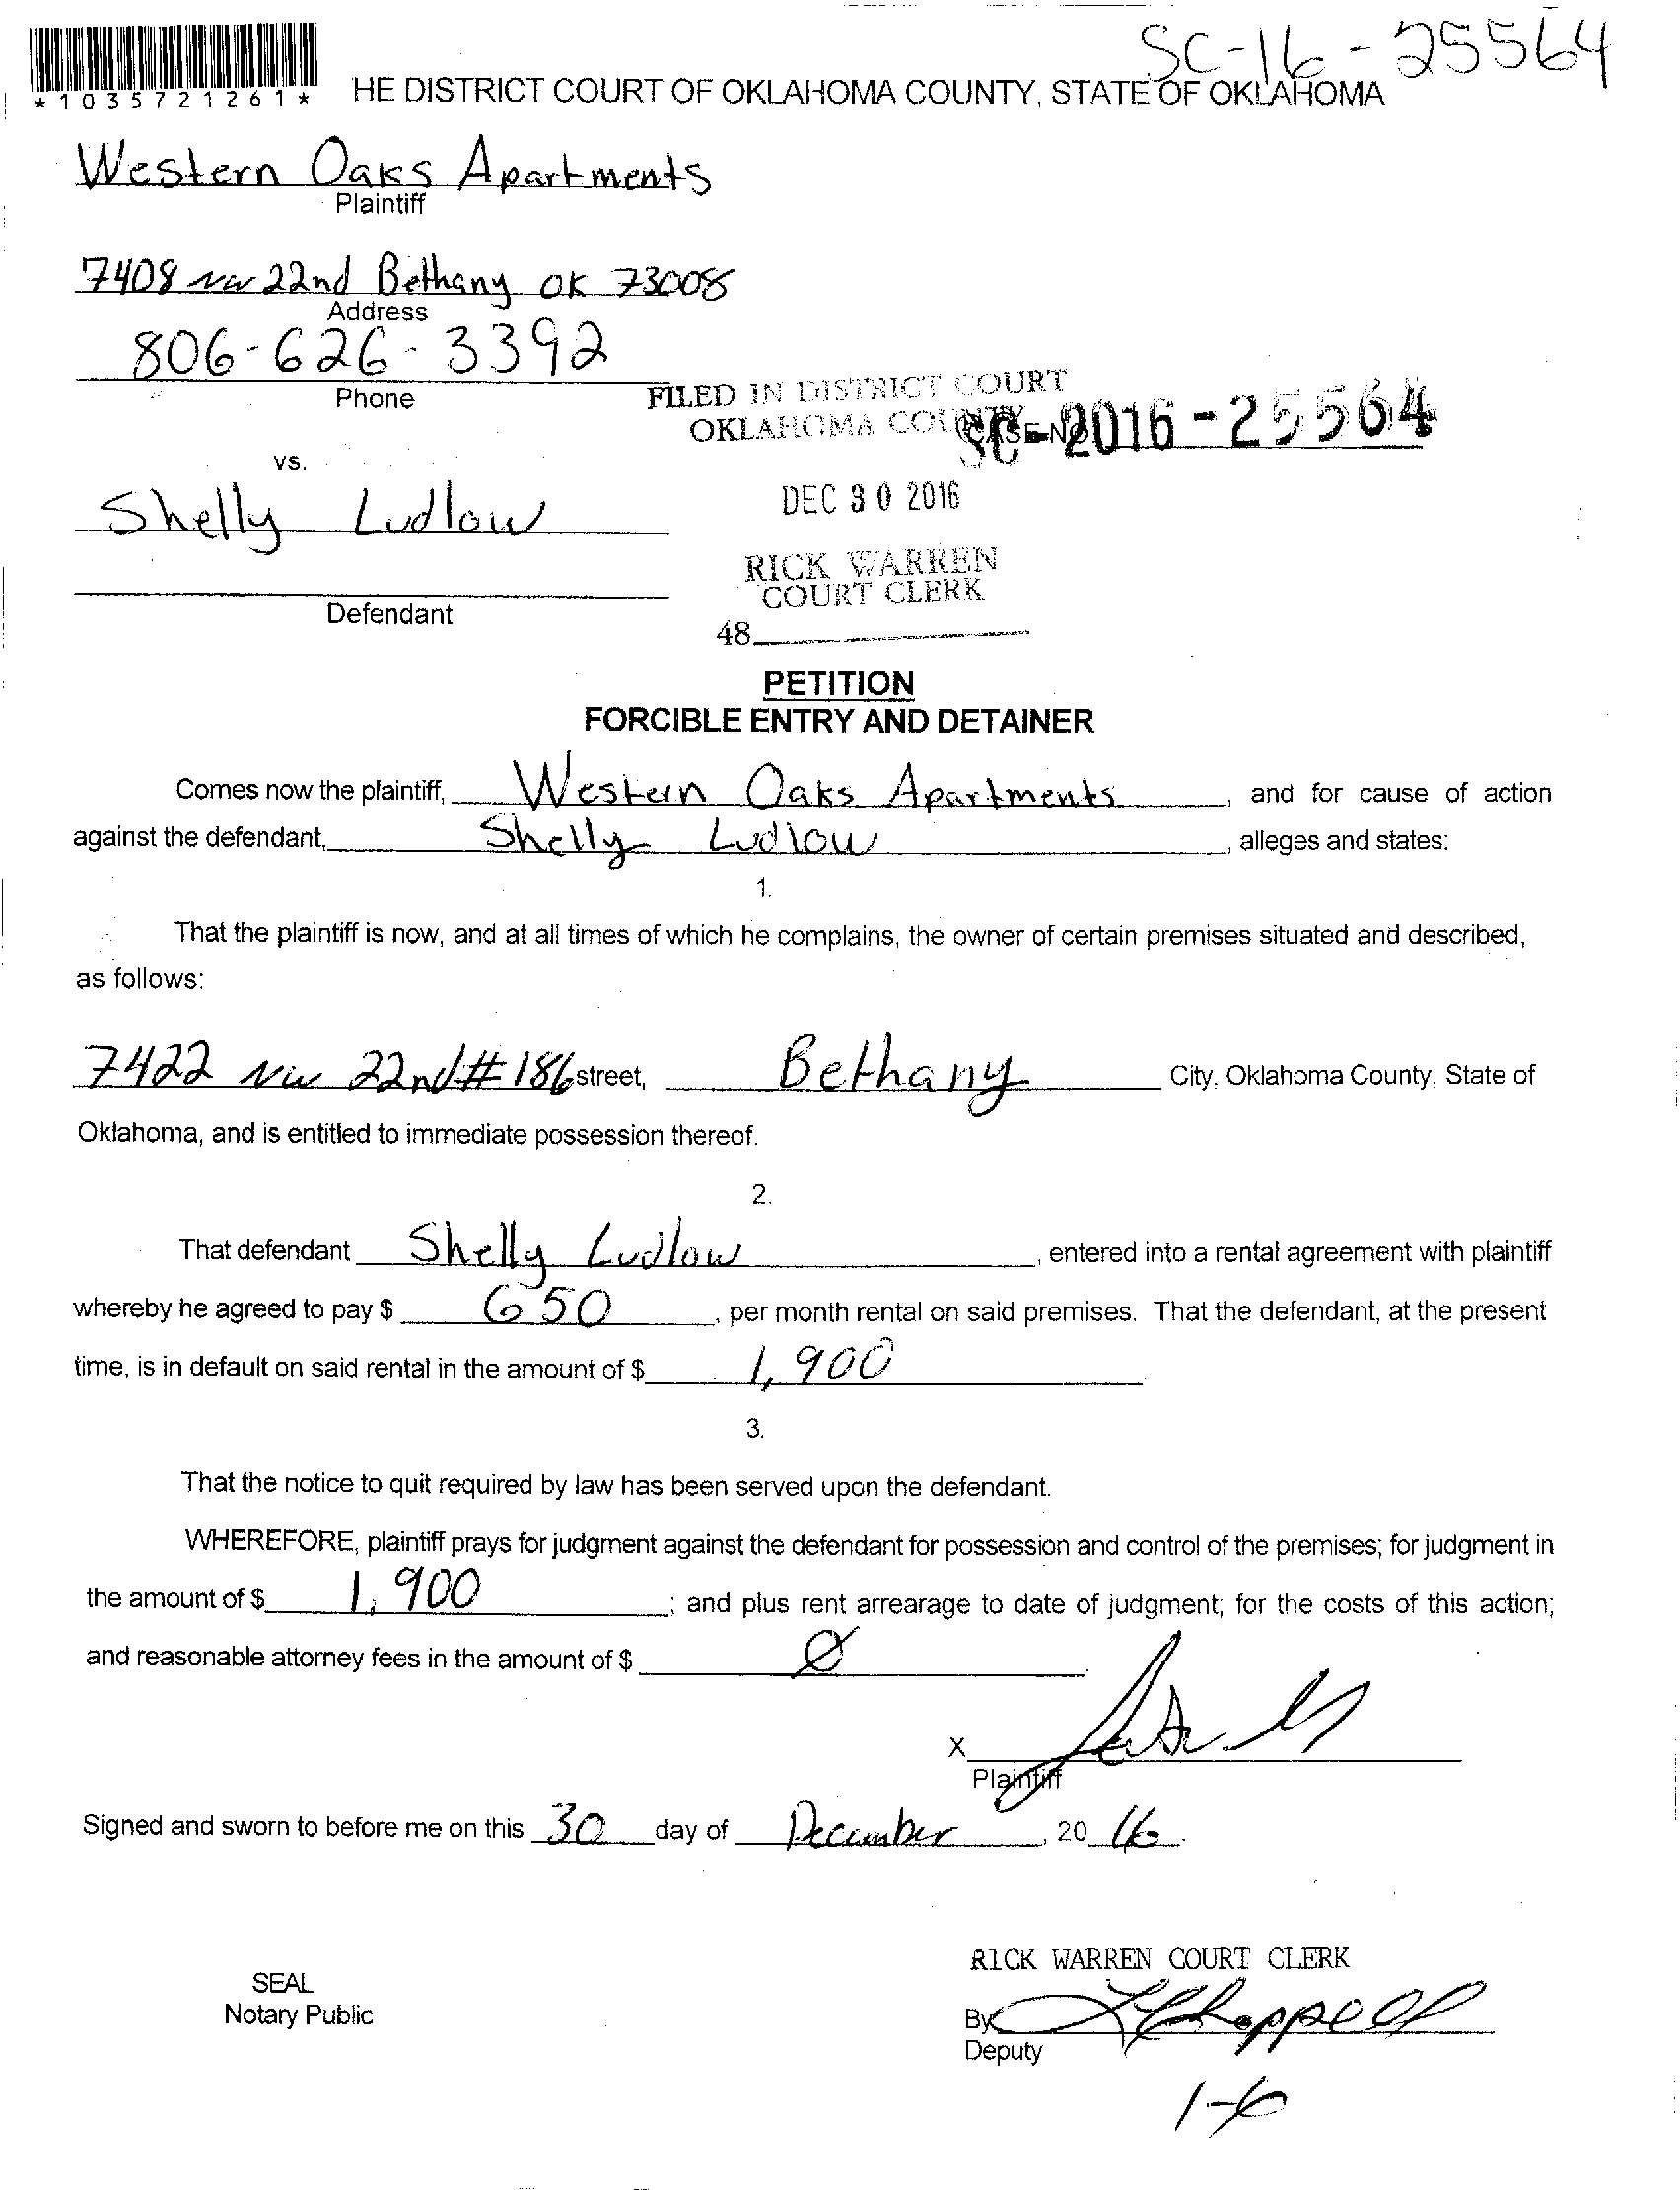 SC-16-25564
*1035721261*
HE DISTRICT COURT OF OKLAHOMA COUNTY, STATE OF OKLAHOMA
Western Oaks Apartments
Plaintiff
7408 NW 22nd Bethany OK 73008
Address
806-626-3392
Phone
FILED IN DISTRICT COURT
OKLAHOMA COUNTY
CASE NO.
SC-2016-25564
vs.
DEC 30 2016
Shelly Ludlow
RICK WARREN
COURT CLERK
Defendant
48
PETITION
FORCIBLE ENTRY AND DETAINER
Comes now the plaintiff, Western Oaks Apartments, and for cause of action
against the defendant, Shelly Ludlow, alleges and states:
1.
That the plaintiff is now, and at all times of which he complains, the owner of certain premises situated and described,
as follows:
7422 NW 22nd #186 street, Bethany City, Oklahoma County, State of
Oklahoma, and is entitled to immediate possession thereof.
2.
That defendant Shelly Ludlow, entered into a rental agreement with plaintiff
whereby he agreed to pay $ 650, per month rental on said premises. That the defendant, at the present
time, is in default on said rental in the amount of $ 1,900.
3.
That the notice to quit required by law has been served upon the defendant.
WHEREFORE, plaintiff prays for judgment against the defendant for possession and control of the premises; for judgment in
the amount of $ 1,900; and plus rent arrearage to date of judgment; for the costs of this action;
and reasonable attorney fees in the amount of $ Ø.
X
Plaintiff
Signed and sworn to before me on this 30 day of December, 20 16.
RICK WARREN COURT CLERK
SEAL
Notary Public
By
Deputy
1-6